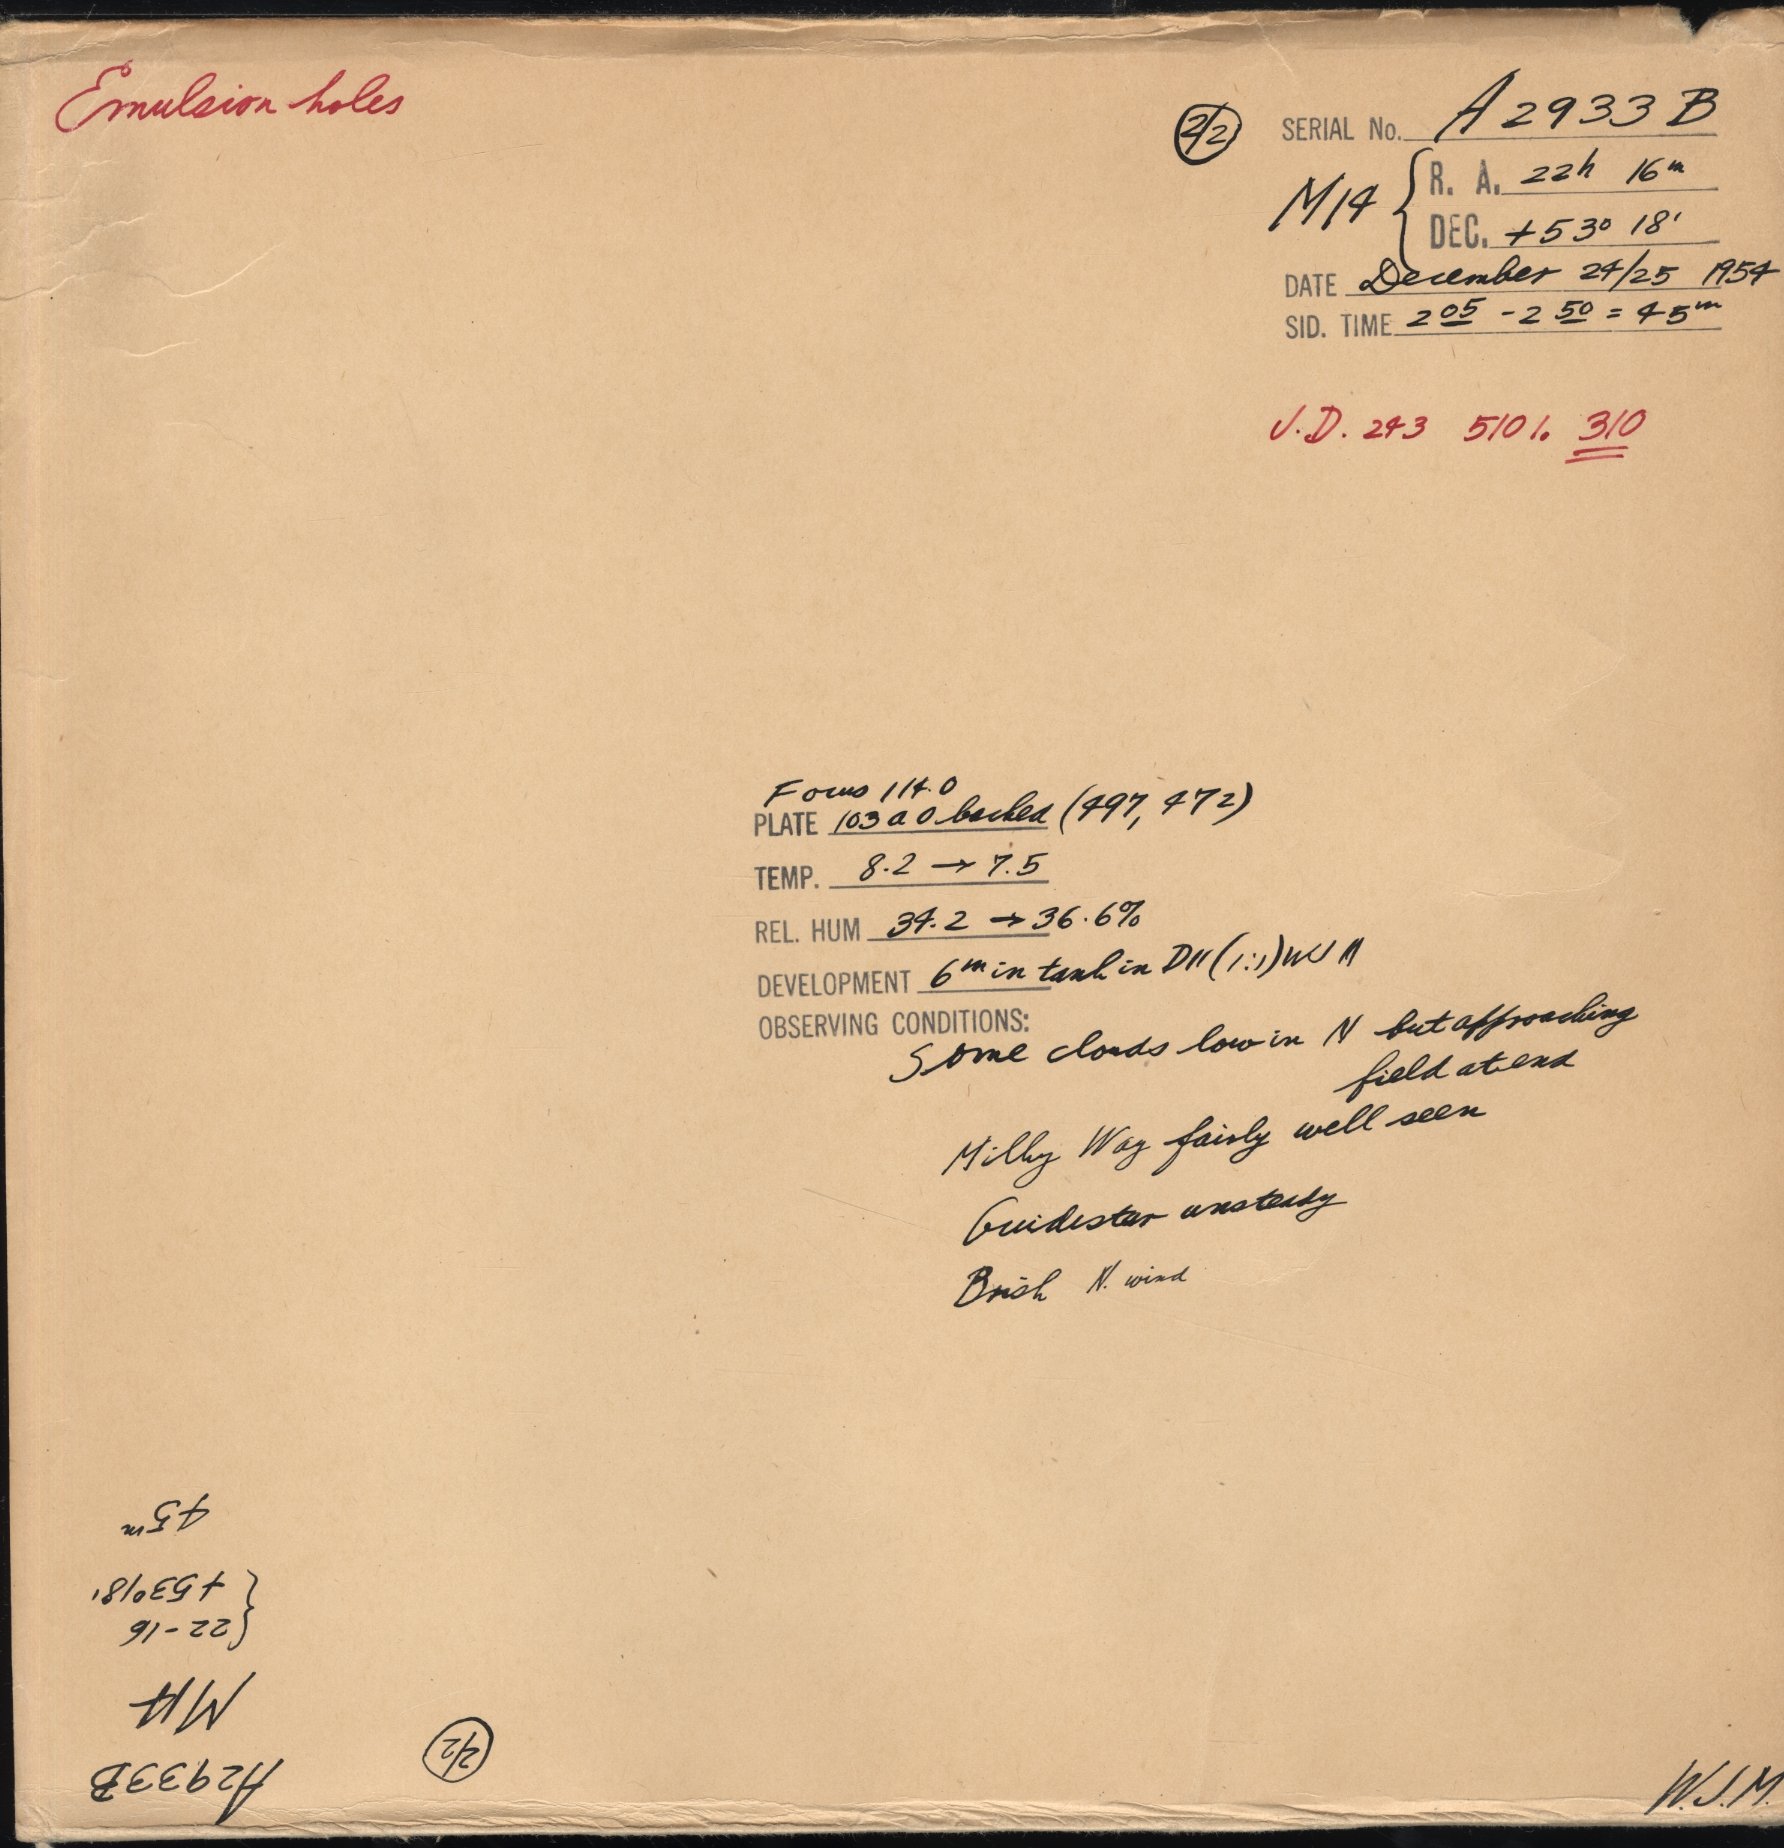 Emulsion holes
2/2
SERIAL No. A 2933 B
M14 { R. A. 22h 16m
DEC. +53° 18'
DATE December 24/25 1954
SID. TIME 2 05 - 2 50 = 45m
J.D. 243 5101. 310
Focus 114.0
PLATE 103 a O backed (497, 472)
TEMP. 8.2 → 7.5
REL. HUM 34.2 → 36.6%
DEVELOPMENT 6m in tank in D11 (1:1) WJM
OBSERVING CONDITIONS:
Some clouds low in N but approaching
field at end
Milky Way fairly well seen
Guidestar unsteady
Brisk N. wind
W.J.M.
A2933B
2/2
M14
{ 22-16
+53°18'
45m